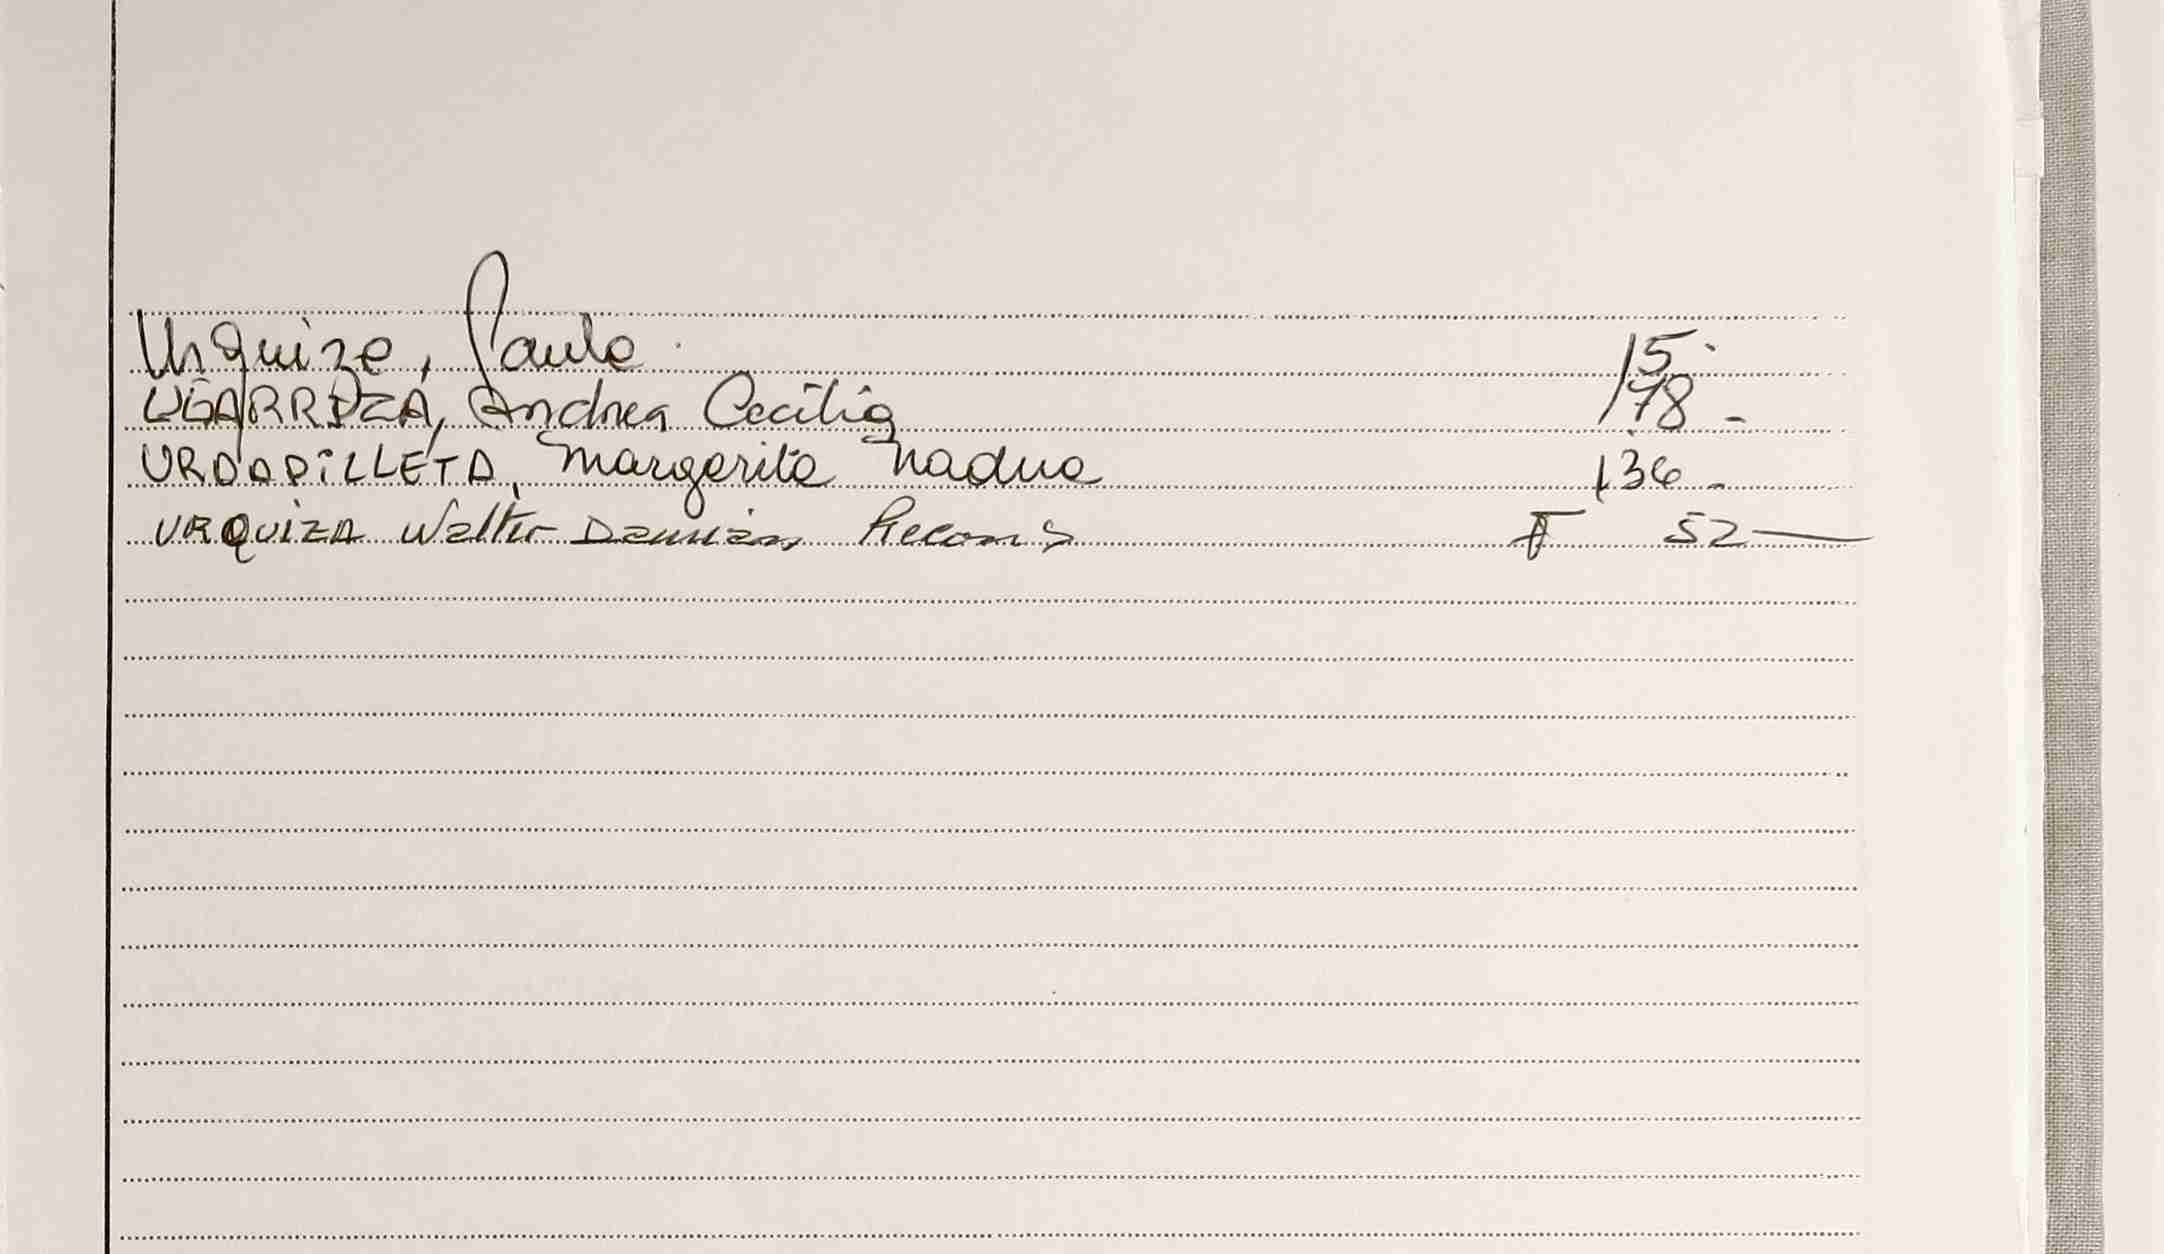 Urquiza, Paula. 15.
UGARRIZA, Andrea Cecilia 178 -
URDAPILLETA, Margarita Nadua 136 -
URQUIZA Walter Damián Recon. F 52 —